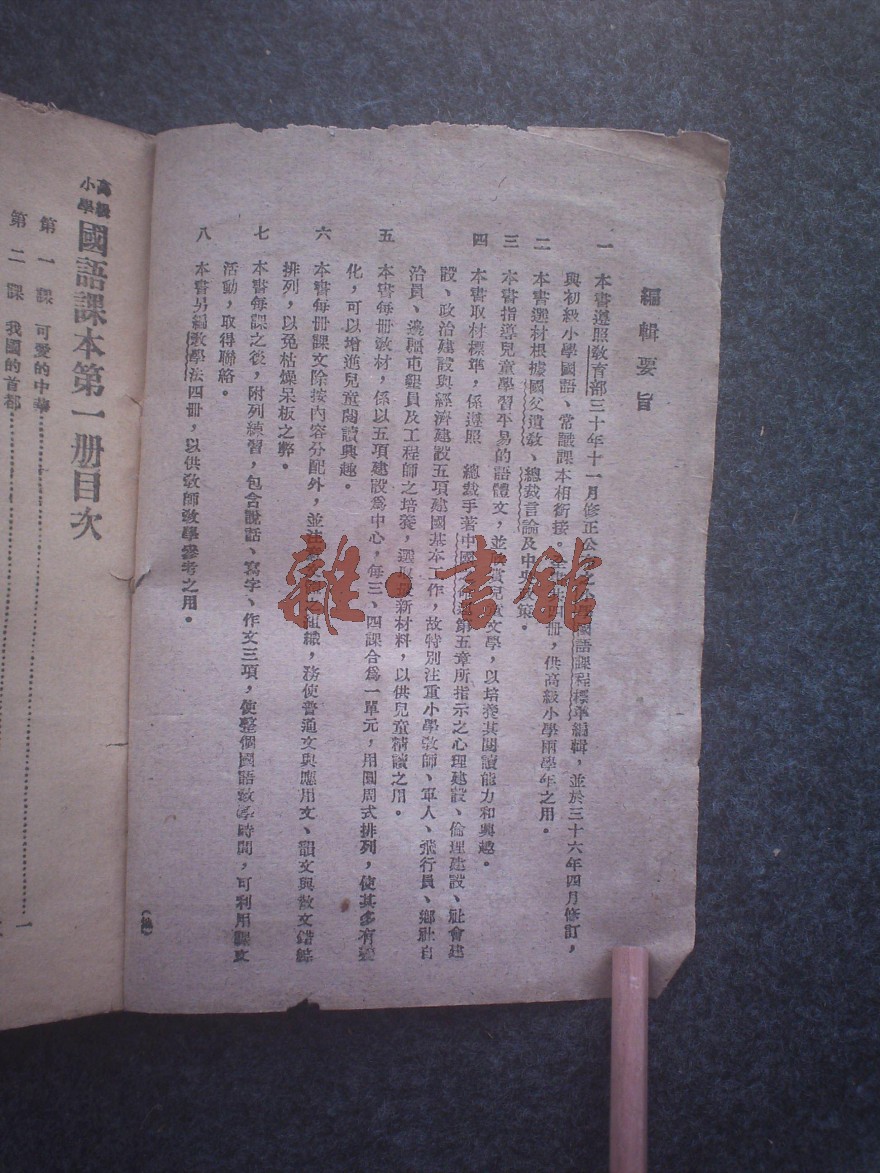 編輯要旨
一 本書遵照教育部三十年十一月修正公 國語課程標準編輯，並於三十六年四月修訂，
與初級小學國語、常識課本相銜接。 册，供高級小學兩學年之用。
二 本書選材根據國父遺教、總裁言論及中央 策。
三 本書指導兒童學習平易的語體文，並欣賞兒童文學，以培養其閱讀能力和興趣。
四 本書取材標準，係遵照 總裁手著中國 第五章所指示之心理建設、倫理建設、社會建
設、政治建設與經濟建設五項建國基本工作，故特別注重小學教師、軍人、飛行員、鄉社自
治員、邊疆屯墾員及工程師之培養，選 最新材料，以供兒童精讀之用。
五 本書每册教材，係以五項建設爲中心，每三、四課合爲一單元，用圓周式排列，使其多有變
化，可以增進兒童閱讀興趣。
六 本書每册課文除按內容分配外，並注 組織，務使普通文與應用文、韻文與散文錯綜
排列，以免枯燥呆板之弊。
七 本書每課之後，附列練習，包含說話、寫字、作文三項，使整個國語教學時間，可利用課文
活動，取得聯絡。
八 本書另編教學法四册，以供教師教學參考之用。
高級小學 國語課本第一册目次
第一課 可愛的中華 一
第二課 我國的首都
雜·書館